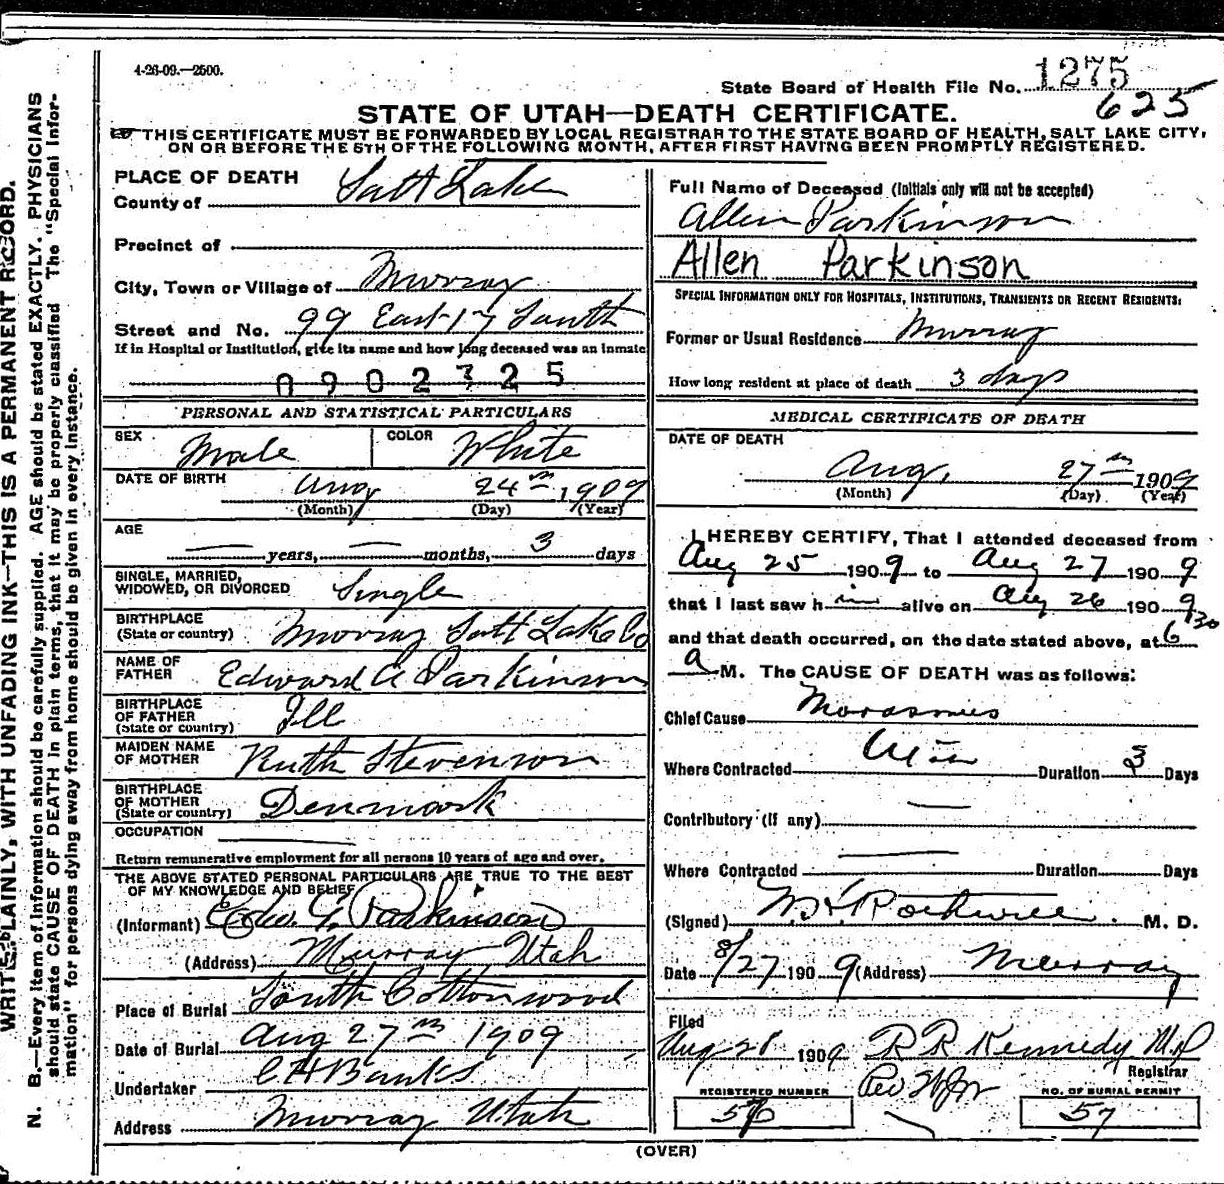 4-26-09.—2500.
State Board of Health File No. 1275
625
STATE OF UTAH—DEATH CERTIFICATE.
THIS CERTIFICATE MUST BE FORWARDED BY LOCAL REGISTRAR TO THE STATE BOARD OF HEALTH, SALT LAKE CITY,
ON OR BEFORE THE 5TH OF THE FOLLOWING MONTH, AFTER FIRST HAVING BEEN PROMPTLY REGISTERED.
PLACE OF DEATH
County of Salt Lake
Precinct of
City, Town or Village of Murray
Street and No. 99 East 17 South
If in Hospital or Institution, give its name and how long deceased was an inmate
0902325
PERSONAL AND STATISTICAL PARTICULARS
SEX Male COLOR White
DATE OF BIRTH Aug 24th, 1909
(Month) (Day) (Year)
AGE — years, — months, 3 days
SINGLE, MARRIED,
WIDOWED, OR DIVORCED Single
BIRTHPLACE
(State or country) Murray Salt Lake Co
NAME OF
FATHER Edward A Parkinson
BIRTHPLACE
OF FATHER
(State or country) Ill
MAIDEN NAME
OF MOTHER Ruth Stevenson
BIRTHPLACE
OF MOTHER
(State or country) Denmark
OCCUPATION
Return remunerative employment for all persons 10 years of age and over.
THE ABOVE STATED PERSONAL PARTICULARS ARE TRUE TO THE BEST
OF MY KNOWLEDGE AND BELIEF
(Informant) Parkinson
(Address) Murray Utah
Place of Burial South Cottonwood
Date of Burial Aug 27th 1909
Undertaker Banks
Address Murray Utah
Full Name of Deceased (Initials only will not be accepted)
Allen Parkinson
Allen Parkinson
SPECIAL INFORMATION ONLY FOR HOSPITALS, INSTITUTIONS, TRANSIENTS OR RECENT RESIDENTS:
Former or Usual Residence Murray
How long resident at place of death 3 days
MEDICAL CERTIFICATE OF DEATH
DATE OF DEATH
Aug. 27th 1909
(Month) (Day) (Year)
I HEREBY CERTIFY, That I attended deceased from
Aug 25 1909 to Aug 27 1909
that I last saw him alive on Aug 26 1909
and that death occurred, on the date stated above, at 6 30
a M. The CAUSE OF DEATH was as follows:
Chief Cause Marasmus
Where Contracted Duration 3 Days
Contributory (if any) —
Where Contracted — Duration Days
(Signed) Rockwell M. D.
Date 8/27 1909 (Address) Murray
Filed
Aug 28 1909 R R Kennedy M.D
Registrar
REGISTERED NUMBER
56
NO. OF BURIAL PERMIT
57
(OVER)
WRITE PLAINLY, WITH UNFADING INK—THIS IS A PERMANENT RECORD.
N. B.—Every item of information should be carefully supplied. AGE should be stated EXACTLY. PHYSICIANS
should state CAUSE OF DEATH in plain terms, that it may be properly classified. The "Special Infor-
mation" for persons dying away from home should be given in every instance.